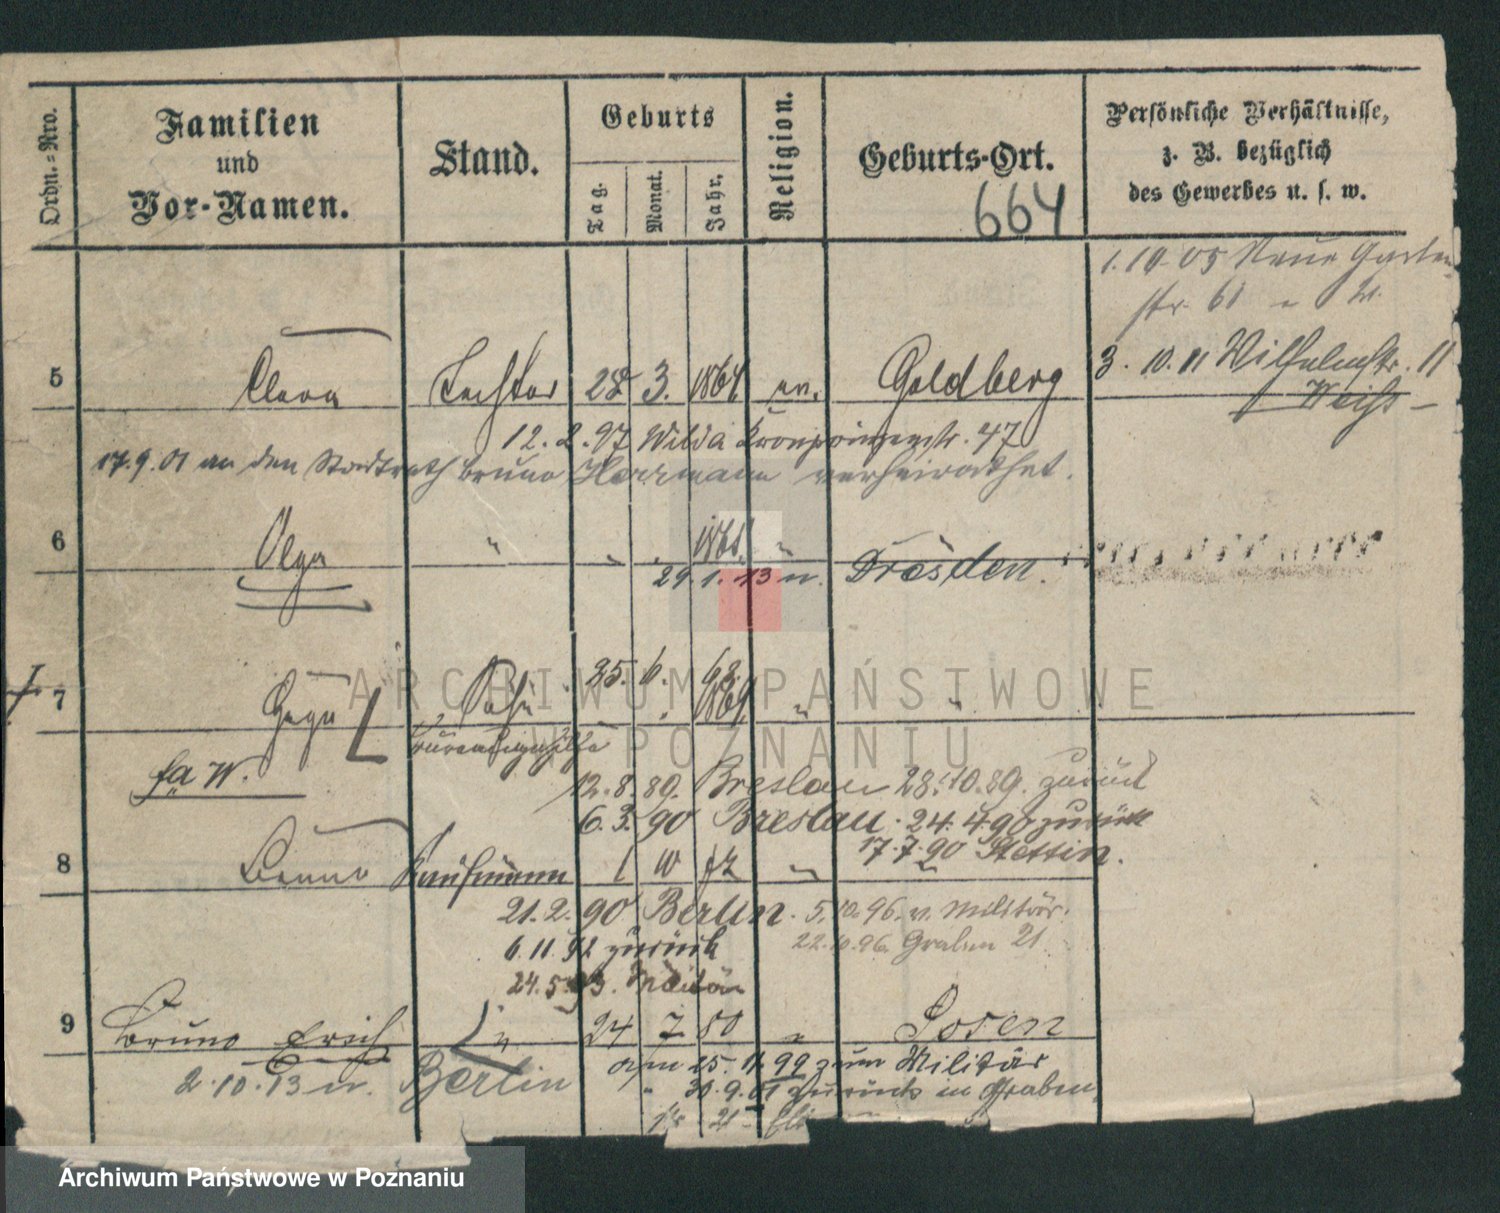 Ordn.=Nro.
Familien
und
Vor-Namen.
Stand.
Geburts
Tag.
Monat.
Jahr.
Religion.
Geburts-Ort.
664
Persönliche Verhältnisse,
z. B. bezüglich
des Gewerbes u. s. w.
1. 10. 05 Neue Garten
str. 61
5 Clara Tochter 28 3. 1864 ev. Goldberg 3. 10. 11 Wilhelmstr. 11
12. 2. 97 Wilda Kronprinzenstr. 47
17. 9. 01 an den Stadtrath Bruno Herrmann verheirathet.
6 Olga " " 1865 "
29. 1. 13 n. Dresden.
7 Sohn 25. 6. 68. "
1869
12. 8. 89. Breslau 28. 10. 89. zurück
6. 3. 90 Breslau. 24. 4. 90 zurück
17. 7. 90 Stettin.
8 Benno Kaufmann 1 10 72 " "
21. 2. 90 Berlin. 5. 10. 96. v. Militär.
6. 11. 92 zurück 22. 10. 96. Graben 21
24. 5. 93. Militär
9 Bruno Erich " 24 7 80 " Posen
15. 11. 99 zum Militär
2. 10. 13 n. Berlin 30. 9. 01 zurück in Graben
21
ARCHIWUM PAŃSTWOWE
W POZNANIU
Archiwum Państwowe w Poznaniu